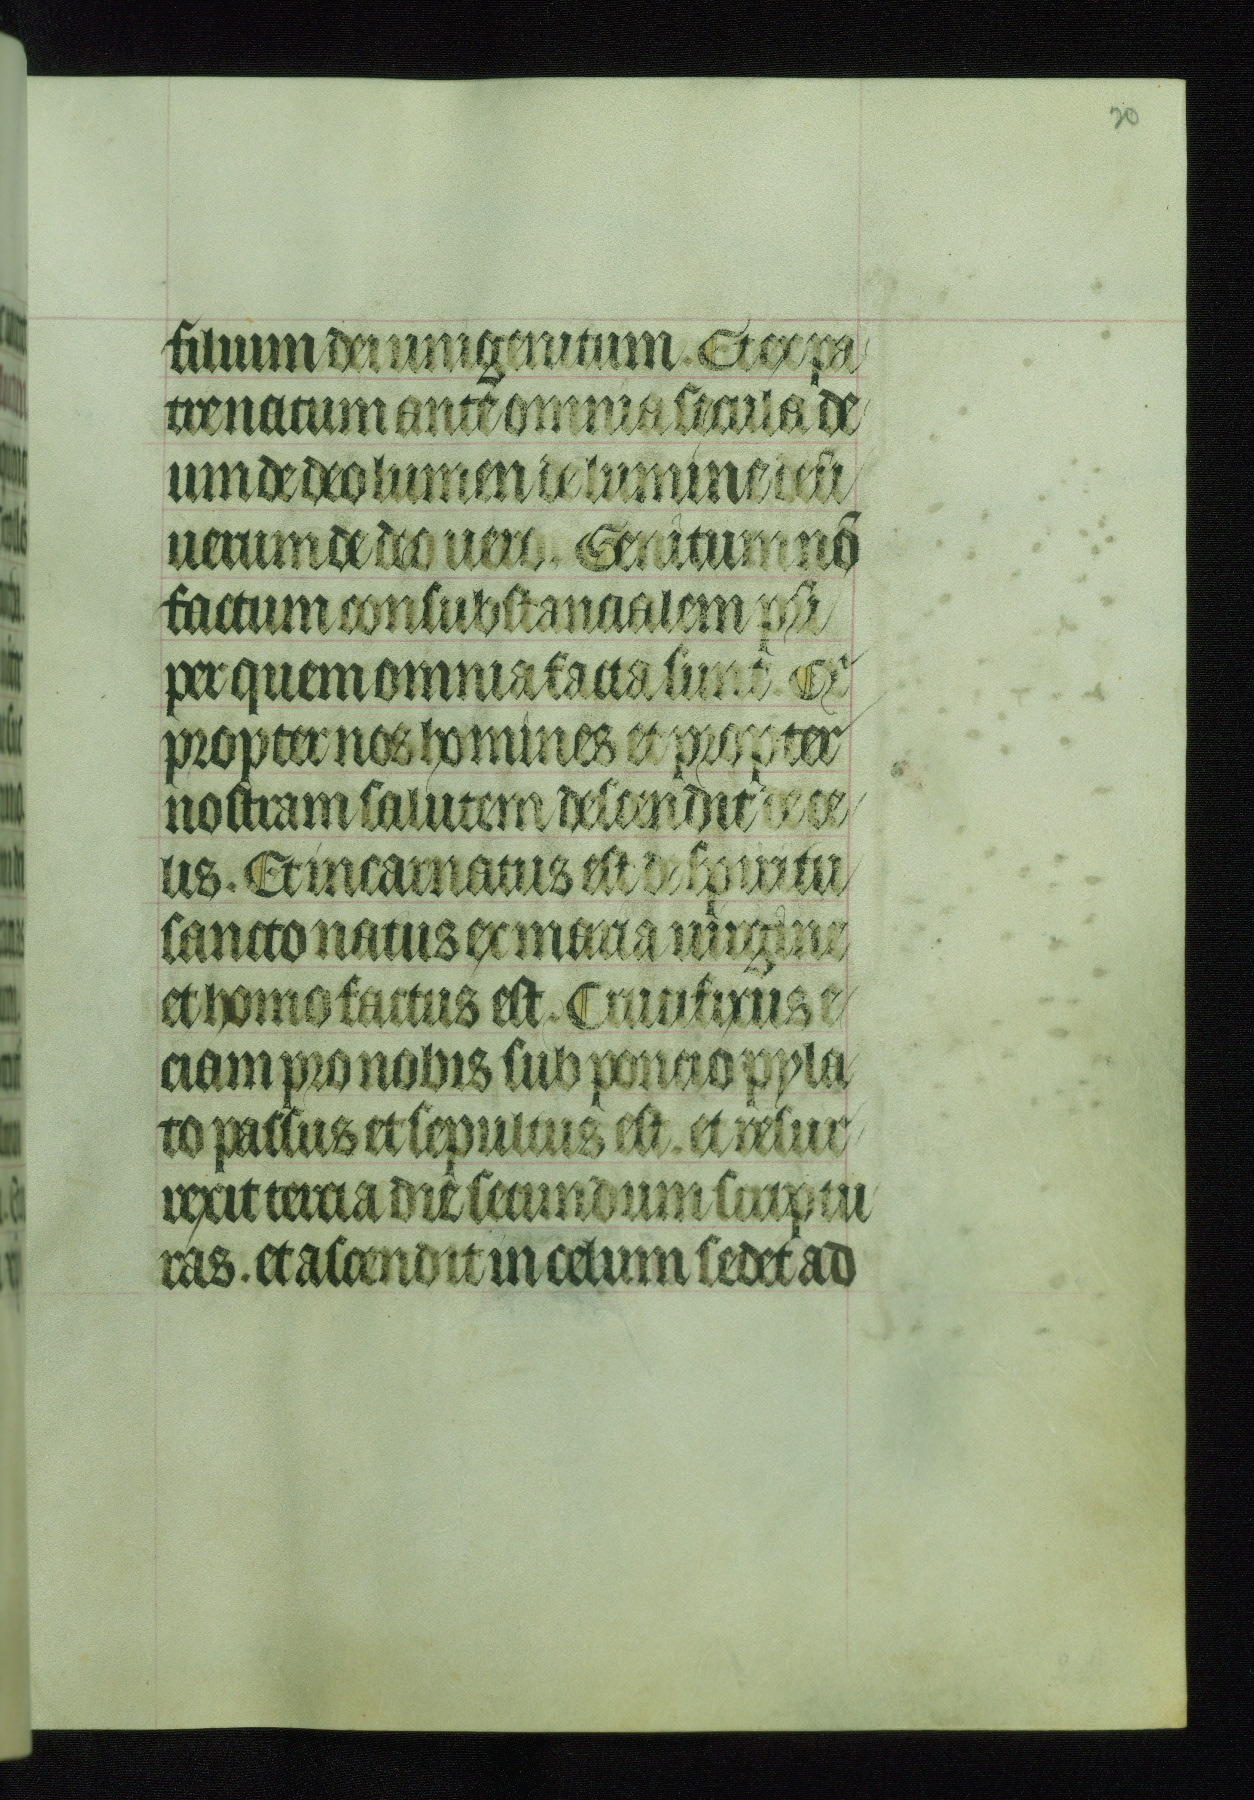 20
filium dei unigenitum. Et ex pa
tre natum ante omnia secula de
um de deo lumen de lumine deū
uerum de deo uero. Genitum nō
factum consubstancialem pr̄i
per quem omnia facta sunt. Et
propter nos homines et propter
nostram salutem descendit de ce
lis. Et incarnatus est de spiritu
sancto natus ex maria uirgine
et homo factus est. Crucifixus e
ciam pro nobis sub poncio pyla
to passus et sepultus est. et resur
rexit tercia die secundum scriptu
ras. et ascendit in celum sedet ad